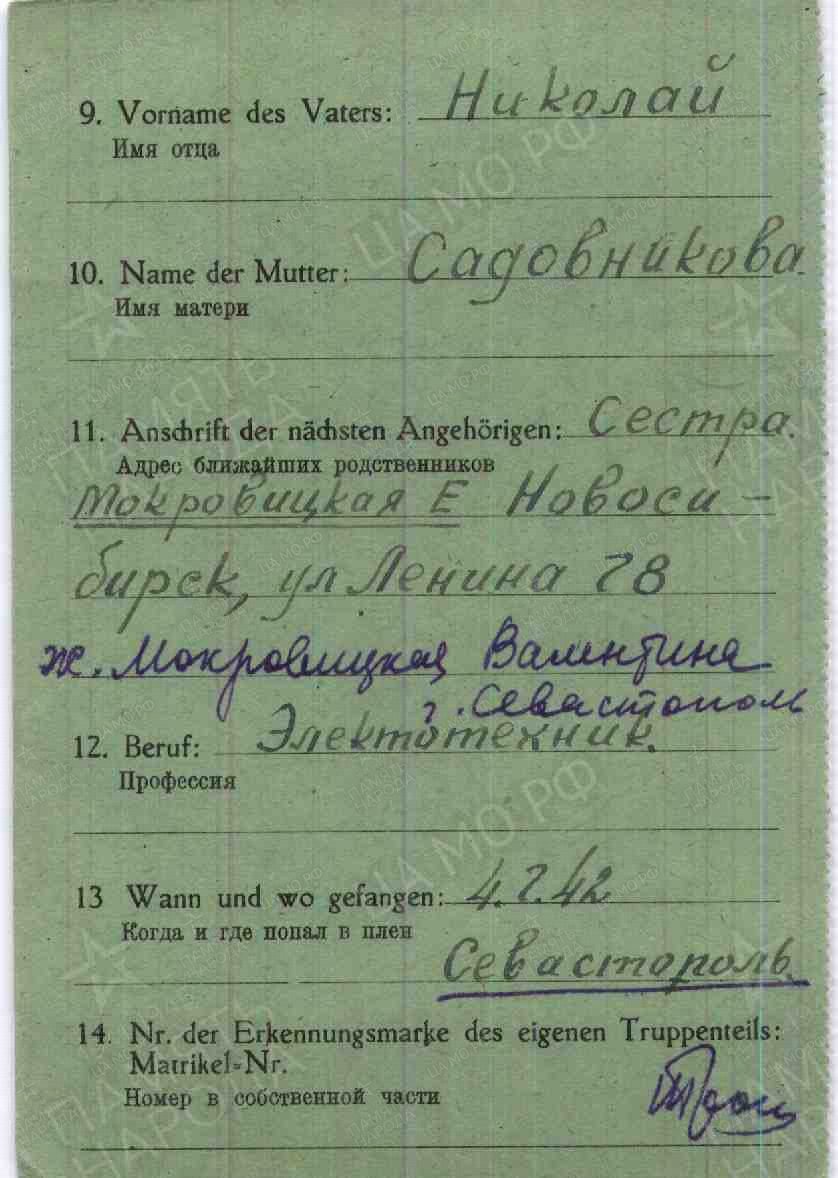 9. Vorname des Vaters: Николай
Имя отца
10. Name der Mutter: Садовникова
Имя матери
11. Anschrift der nächsten Angehörigen: Сестра.
Адрес ближайших родственников
Мокровицкая Е Новоси-
бирск, ул Ленина 78
ж. Мокровицкая Валентина
г. Севастополь
12. Beruf: Электотехник.
Профессия
13 Wann und wo gefangen: 4.7.42
Когда и где попал в плен
Севастополь
14. Nr. der Erkennungsmarke des eigenen Truppenteils:
Matrikel-Nr.
Номер в собственной части
ЦАМО РФ
ПАМЯТЬ
НАРОДА